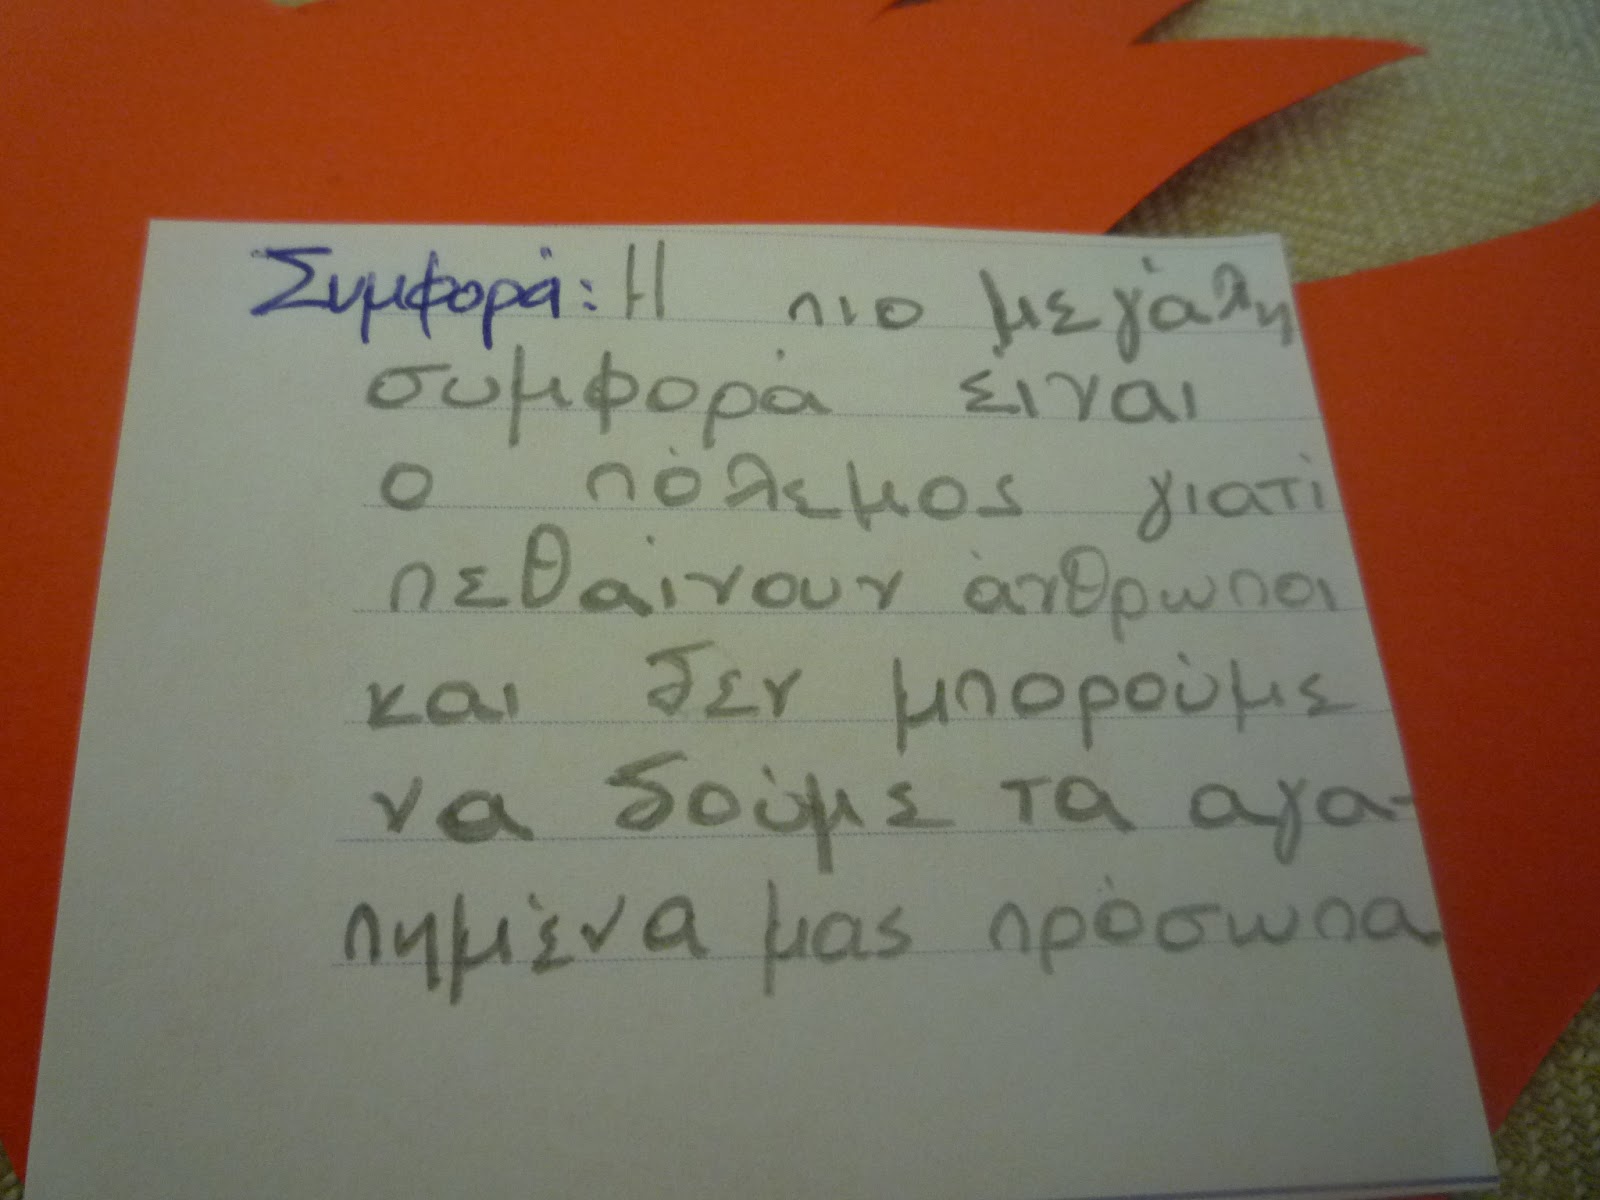 Συμφορά: Η πιο μεγάλη
συμφορά έιναι
ο πόλεμος γιατί
πεθαίνουν άνθρωποι
και δεν μπορούμε
να δούμε τα αγα-
πημένα μας πρόσωπα